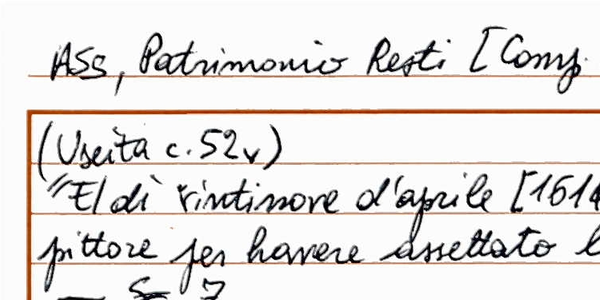 ASS, Patrimonio Resti [Comp.
(Uscita c. 52v)
"El dì vintinove d'aprile [1614
pittore per havere assettato l